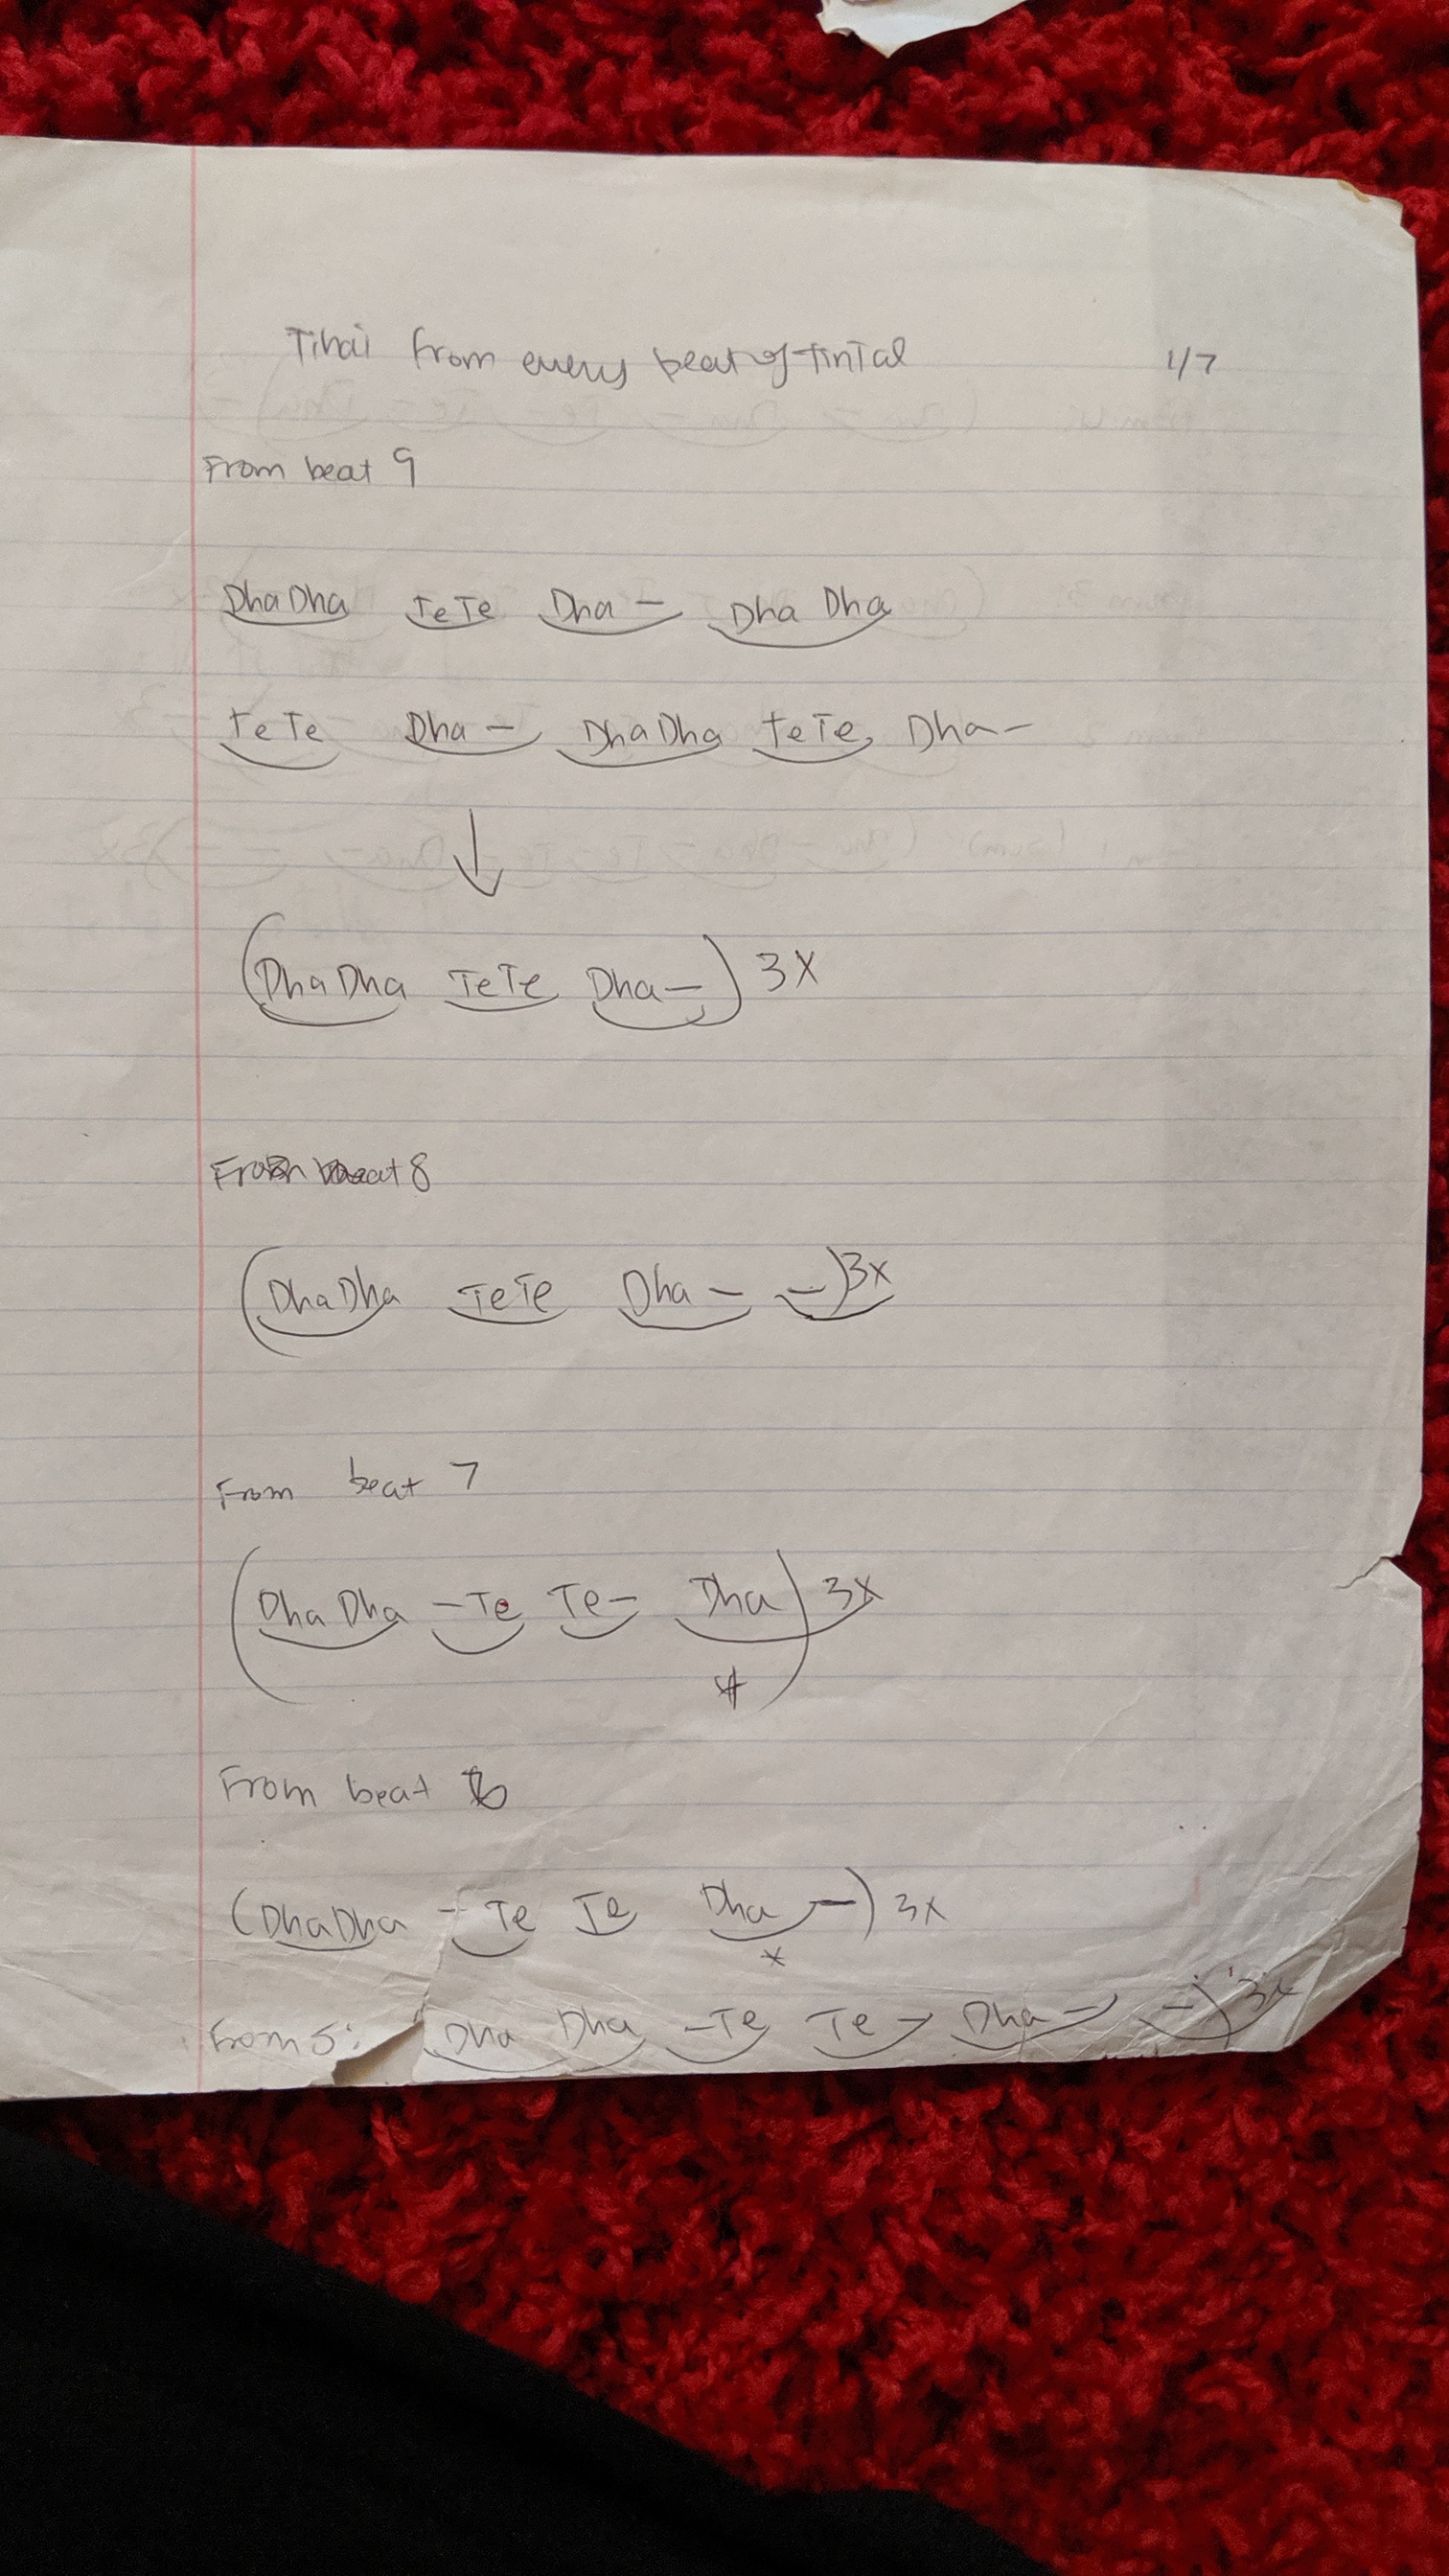 Tihai from every beat of TinTal 1/7
From beat 9
DhaDha TeTe Dha – Dha Dha
TeTe Dha – DhaDha TeTe Dha –
↓
(DhaDha TeTe Dha –) 3X
From beat 8
(DhaDha TeTe Dha – –) 3x
From beat 7
(Dha Dha – Te Te – Dha) 3x
From beat 6
(DhaDha – Te Te Dha –) 3x
x
From 5: Dha Dha – Te Te – Dha – –) 3x